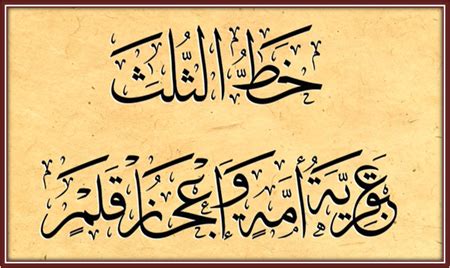 خَطُّ الثُّلُث
عبقرية أمةٍ وَإعجاز قلمٍ